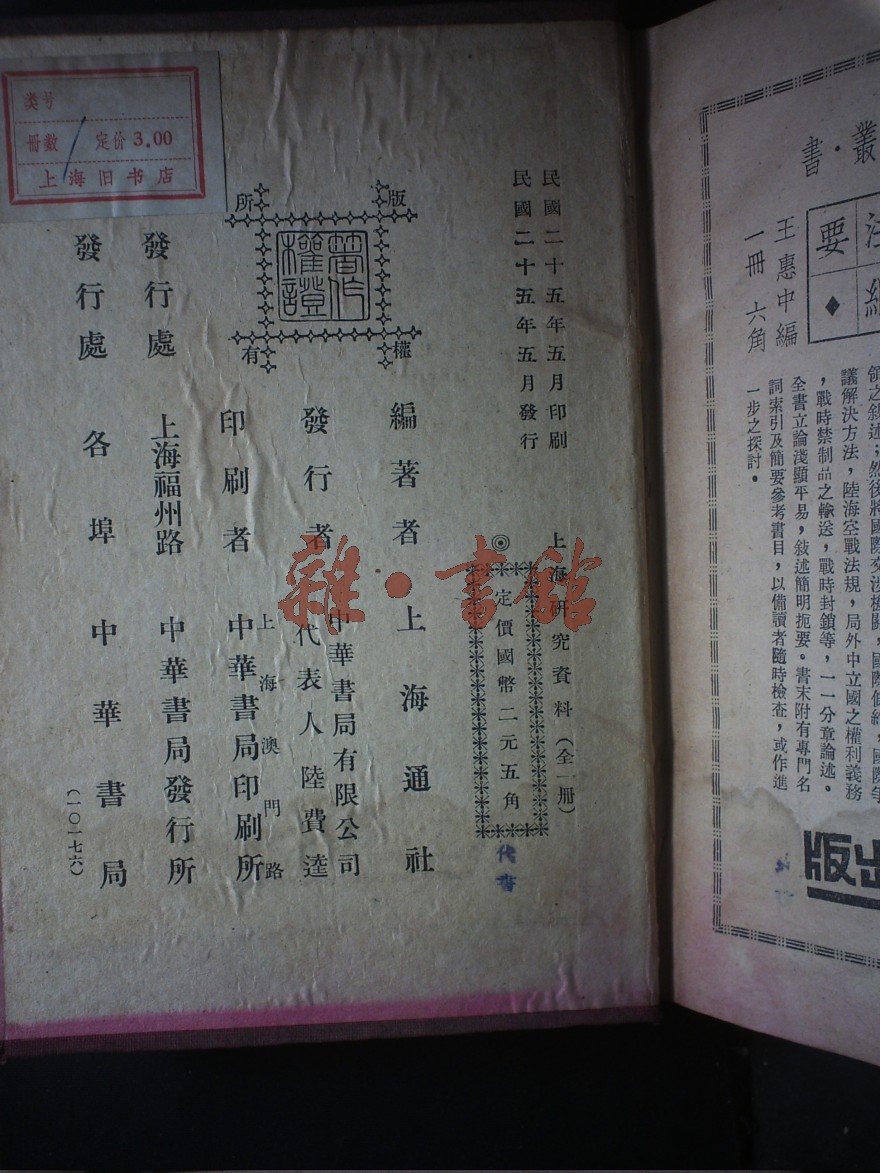 叢·書
要
王惠中編
一冊 六角
領之敍述；然後將國際交涉機關，國際條約，國際爭
議解決方法，陸海空戰法規，局外中立國之權利義務
，戰時禁制品之輸送，戰時封鎖等，一一分章論述。
全書立論淺顯平易，敍述簡明扼要。書末附有專門名
詞索引及簡要參考書目，以備讀者隨時檢查，或作進
一步之探討。
出版
民國二十五年五月印刷
民國二十五年五月發行
上海研究資料（全一冊）
◎定價國幣二元五角
代書
版權所有
著作權證
編著者 上海通社
發行者 中華書局有限公司
代表人 陸費逵
印刷者 上海澳門路
中華書局印刷所
發行處 上海福州路 中華書局發行所
發行處 各埠中華書局
（一〇一七六）
类号
册数 / 定价 3.00
上海旧书店
雜·書館